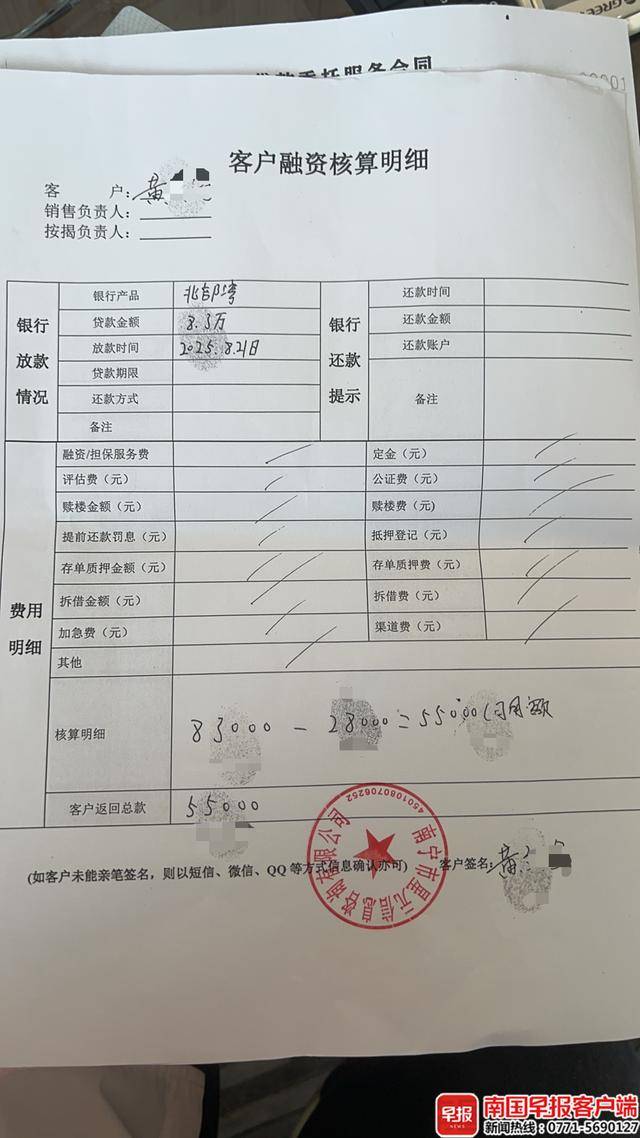 GREE
委托服务合同
0001
客户融资核算明细
客 户：黄
销售负责人：
按揭负责人：
银行放款情况
银行产品 北部湾
贷款金额 8.3万
放款时间 2025.8.21日
贷款期限
还款方式
备注
银行还款提示
还款时间
还款金额
还款账户
备注
费用明细
融资/担保服务费 定金（元）
评估费（元） 公证费（元）
赎楼金额（元） 赎楼费（元)
提前还款罚息（元） 抵押登记（元）
存单质押金额（元） 存单质押费（元）
拆借金额（元） 拆借费（元）
加急费（元） 渠道费（元）
其他
核算明细 83000 － 28000 = 55000
客户返回总款 55000
(如客户未能亲笔签名，则以短信、微信、QQ 等方式信息确认亦可) 客户签名：黄
南宁市里元信息咨询有限公司
4501080706252
早报
NEWS
南国早报客户端
新闻热线：0771-5690127